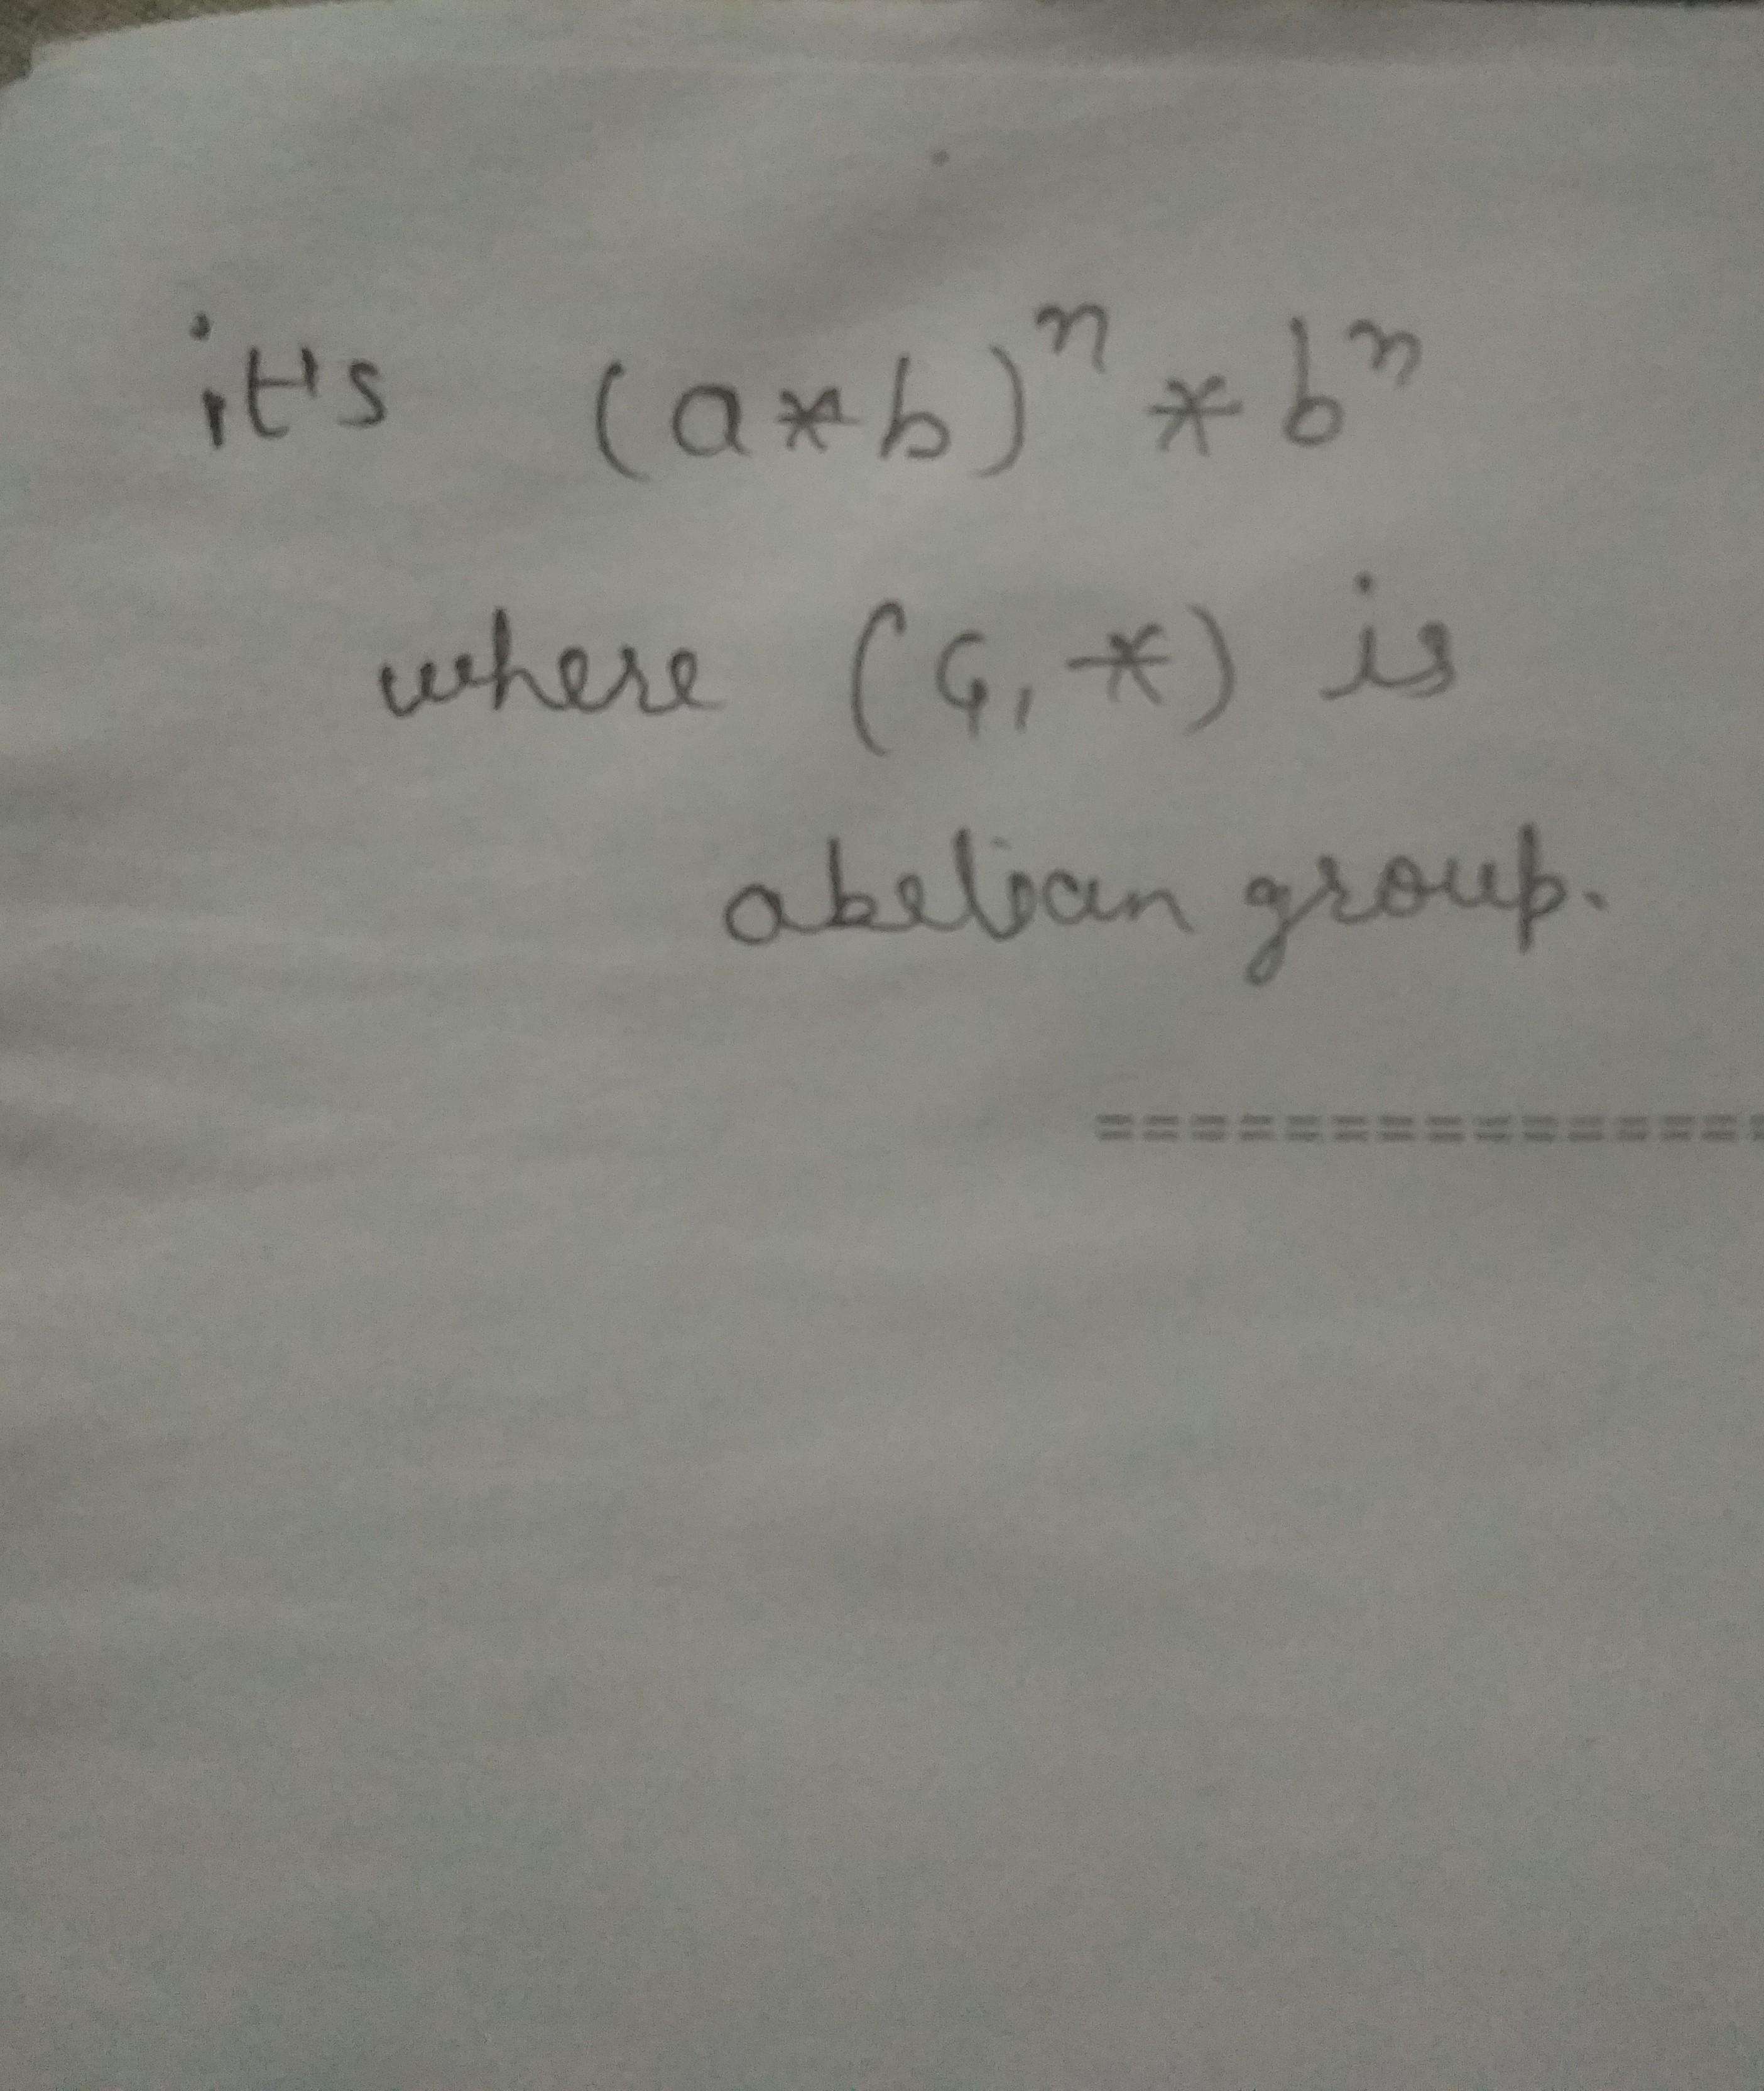 it's (a*b)ⁿ * bⁿ
where (G, *) is
abelian group.
===============